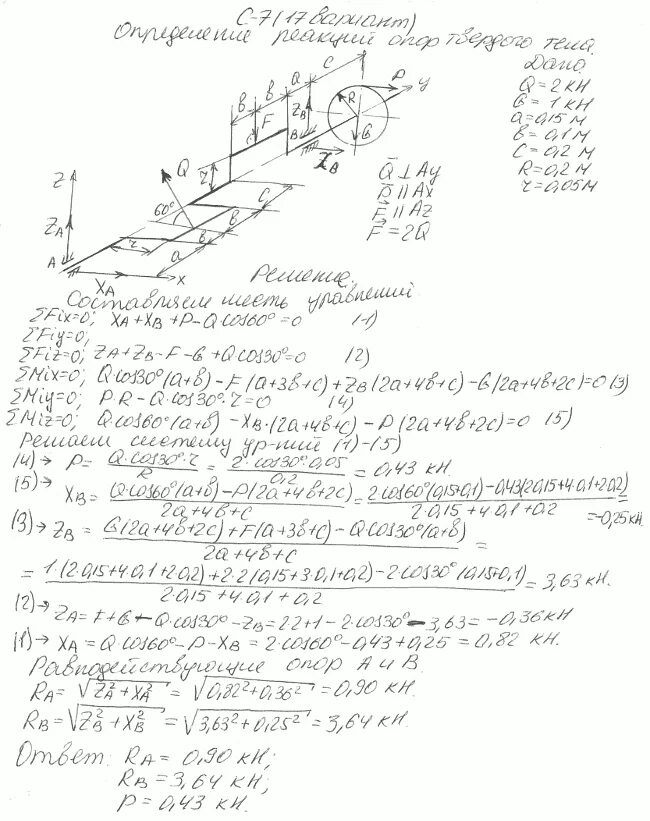 С-7 (17 вариант)
Определение реакций опор твердого тела.
Дано
Q = 2 кН
G = 1 кН
a = 0,15 м
в = 0,1 м
C = 0,2 м
R = 0,2 м
r = 0,05 м
Q̄ ⊥ Ay
P̄ || Ax
F̄ || Az
F̄ = 2Q
C
a
в
в
P
y
R
Z_B
F
G
X_B
Q
r
60°
Z
Z_A
A
X_A
x
r
a
в
в
C
Решение.
Составляем шесть уравнений
ΣFix=0; X_A + X_B + P - Q·cos60° = 0 (1)
ΣFiy=0;
ΣFiz=0; Z_A + Z_B - F - G + Q·cos30° = 0 (2)
ΣMix=0; Q·cos30°(a+в) - F(a+3в+c) + Z_B(2a+4в+c) - G(2a+4в+2c) = 0 (3)
ΣMiy=0; P·R - Q·cos30°·r = 0 (4)
ΣMiz=0; Q·cos60°(a+в) - X_B·(2a+4в+c) - P(2a+4в+2c) = 0 (5)
Решаем систему ур-ний (1)-(5)
(4)→ P = Q·cos30°·r / R = 2·cos30°·0,05 / 0,2 = 0,43 кН.
(5)→ X_B = Q·cos60°(a+в) - P(2a+4в+2c) / 2a+4в+c = 2·cos60°(0,15+0,1) - 0,43(2·0,15+4·0,1+2·0,2) / 2·0,15+4·0,1+0,2 =
= -0,25 кН.
(3)→ Z_B = G(2a+4в+2c) + F(a+3в+c) - Q·cos30°(a+в) / 2a+4в+c =
= 1·(2·0,15+4·0,1+2·0,2) + 2·2(0,15+3·0,1+0,2) - 2·cos30°(0,15+0,1) / 2·0,15+4·0,1+0,2 = 3,63 кН.
(2)→ Z_A = F + G - Q·cos30° - Z_B = 2·2+1 - 2·cos30° - 3,63 = -0,36 кН
(1)→ X_A = Q·cos60° - P - X_B = 2·cos60° - 0,43 + 0,25 = 0,82 кН.
Равподействующие опор А и В.
R_A = √(Z_A² + X_A²) = √(0,82² + 0,36²) = 0,90 кН.
R_B = √(Z_B² + X_B²) = √(3,63² + 0,25²) = 3,64 кН.
Ответ: R_A = 0,90 кН;
R_B = 3,64 кН;
P = 0,43 кН.